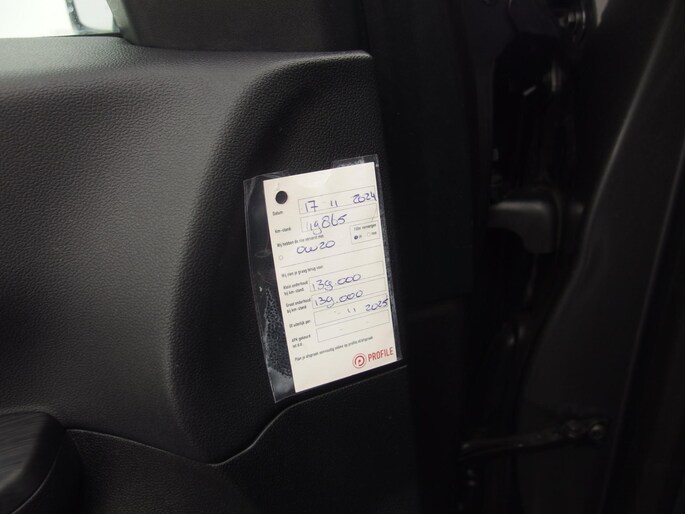 Datum 17 11 2024
Km-stand 119865
Wij hebben de olie ververst met
0w20
Wij zien je graag terug voor:
Klein onderhoud bij km-stand 139.000
Groot onderhoud bij km-stand 139.000
Of uiterlijk per 11 2025
APK gekeurd tot d.d.
PROFILE